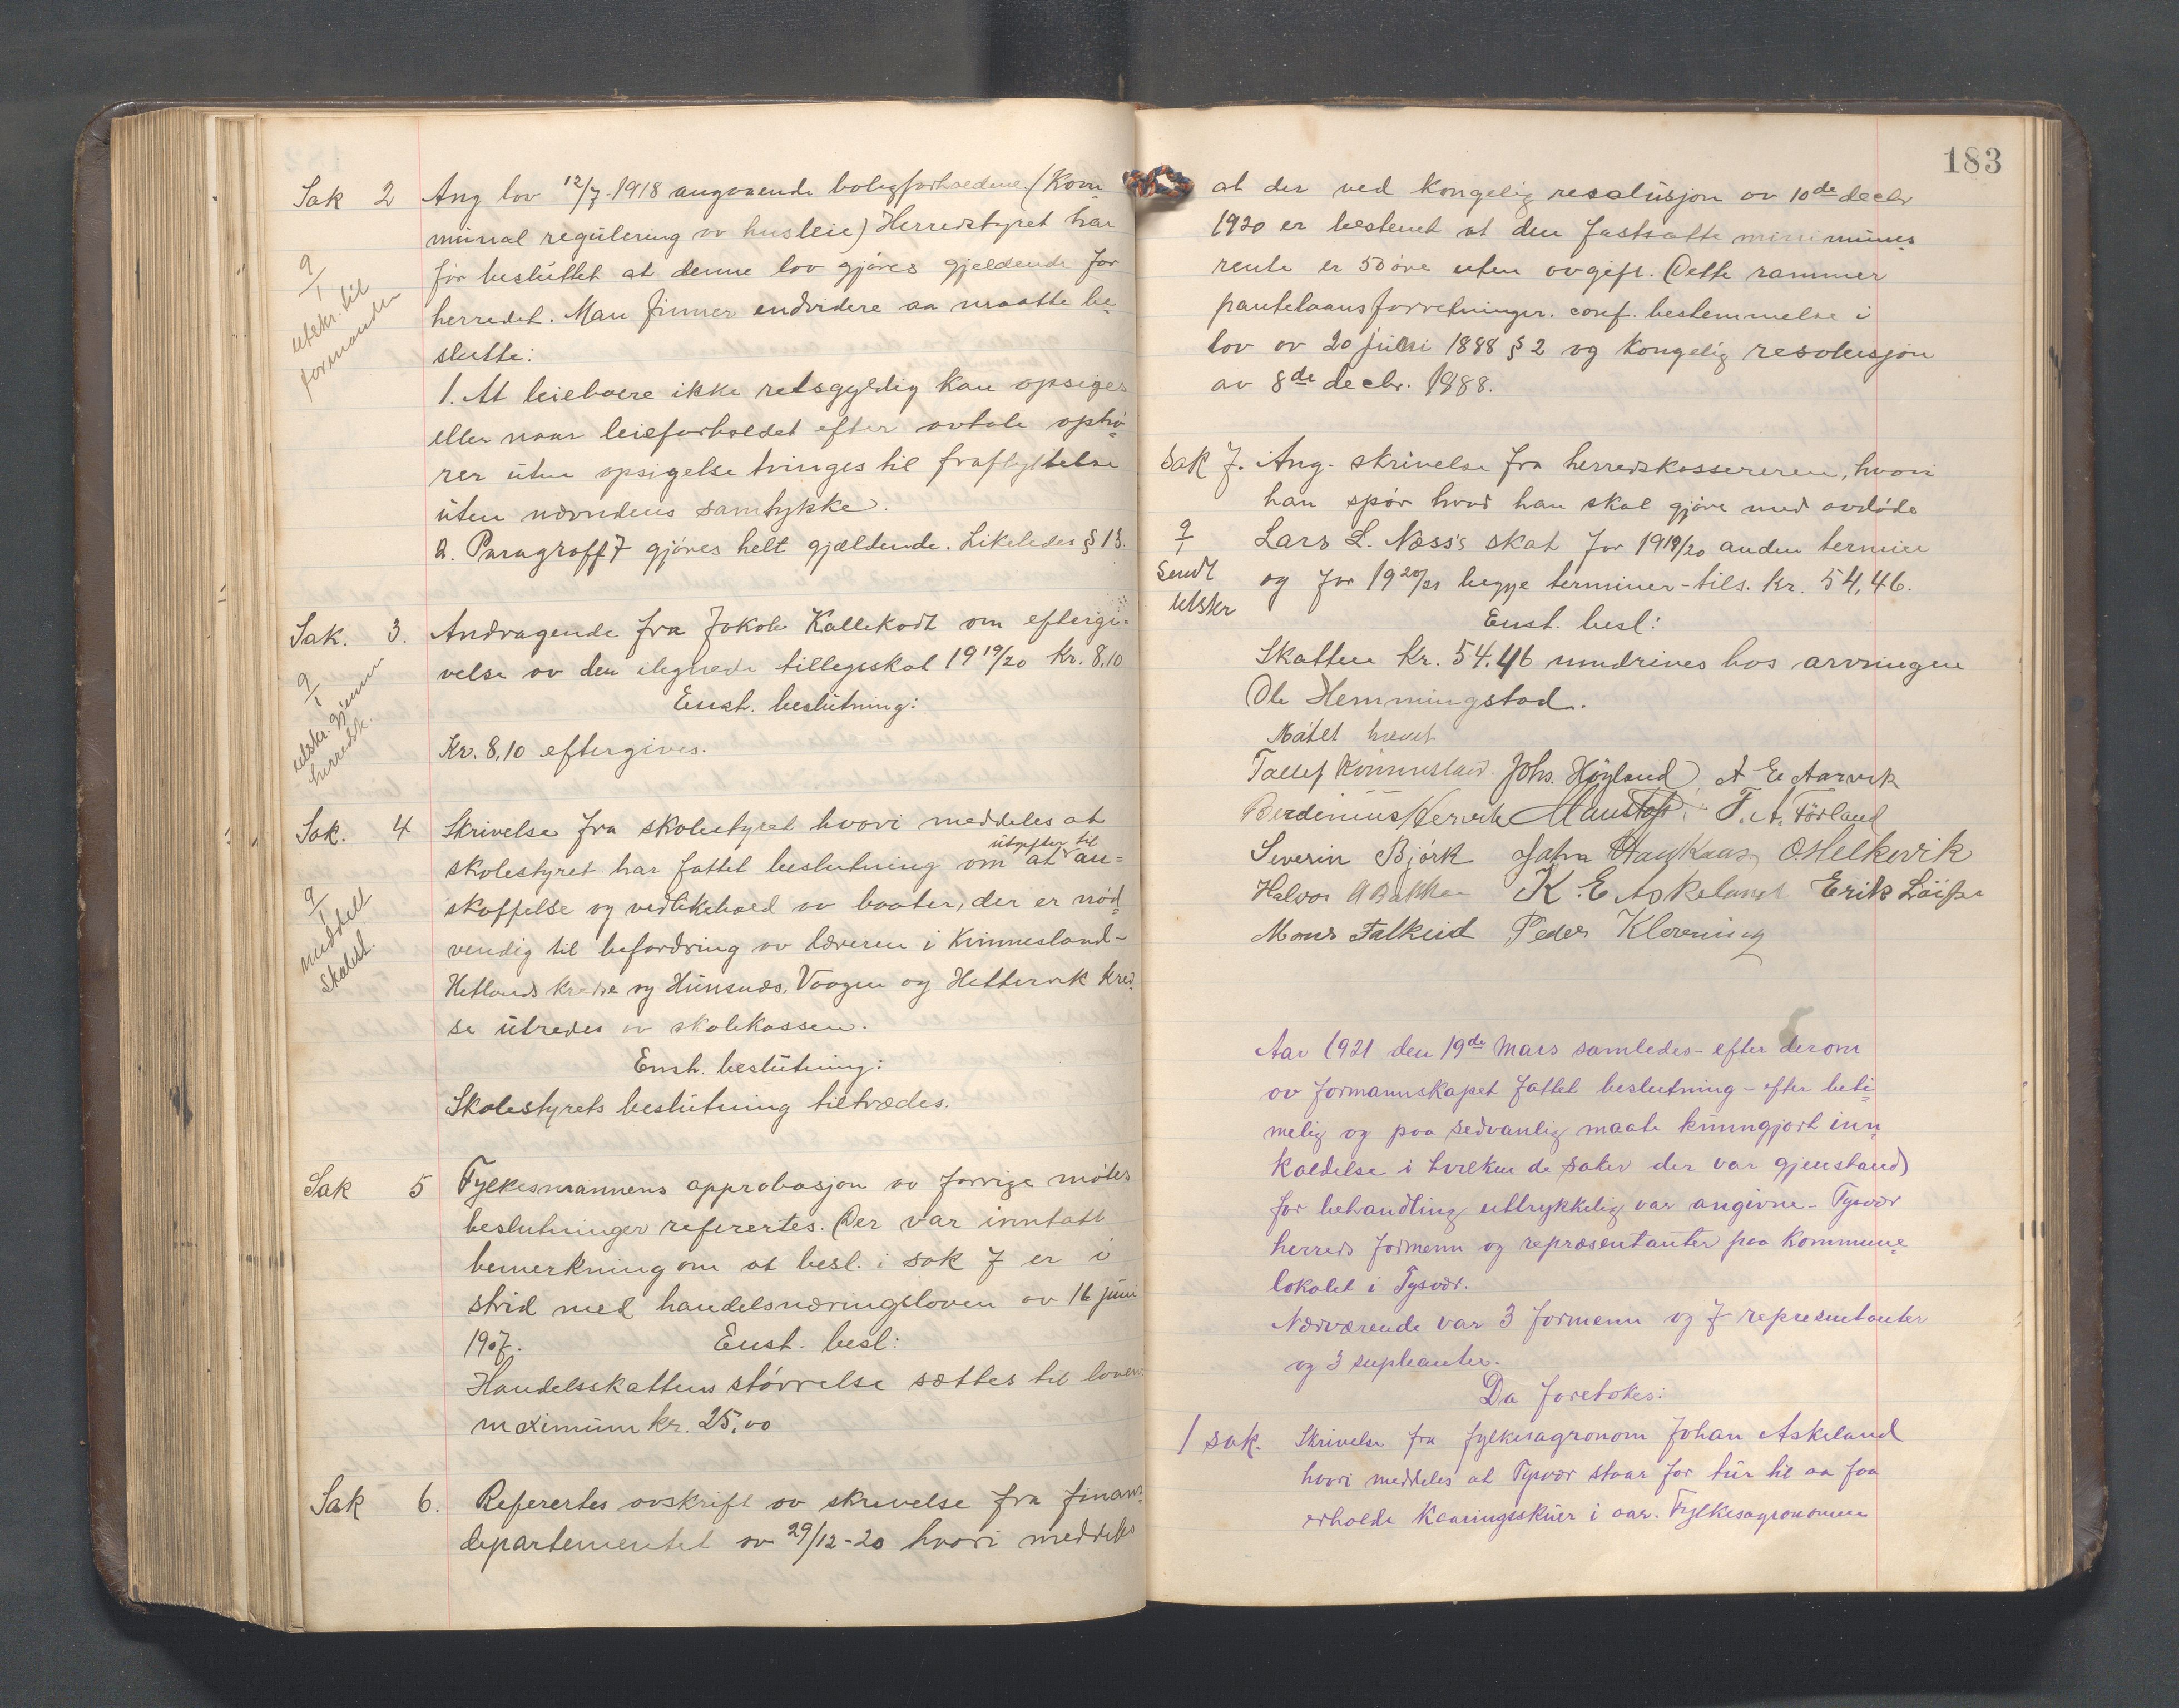 Sak 2 Ang lov 12/7-1918 angaaende boligforholdene. (Kom=
munal regulering av husleie) Herredstyret har
før besluttet at denne lov gjøres gjeldende for
9/1 utskr. til formanden
herredet. Man finner endvidere aa maatte be=
slutte:
1. At leieboere ikke retsgyldig kan opsiges
eller naar leieforholdet efter avtale ophø=
rer uten opsigelse tvinges til fraflyttelse
uten nævndens samtykke.
2. Paragraff 7 gjøres helt gjældende. Likeledes § 13.
Sak. 3. Andragende fra Jakob Kallekodt om eftergi=
velse av den ilignede tillegsskat 1919/20 Kr. 8,10
9/1 utskr. gjenn herredsk.
Enst. beslutning:
Kr. 8,10 eftergives.
Sak. 4 Skrivelse fra skolestyret hvori meddeles at
skolestyret har fattet beslutning om at utgifter til an=
skaffelse og vedlikehold av baater, der er nød=
9/1 meddelt skolest.
vendig til befordring av læreren i Kinnesland-
Hetlands kredse og Hünsnæs, Vaagen og Hettervik kred=
se utredes av skolekassen.
Enst. beslutning:
Skolestyrets beslutning tiltrædes.
Sak 5 Fylkesmannens approbasjon av forrige møtes
beslutninger refererte. Der var inntatt
bemerkning om at besl. i sak 7 er i
strid med handelsnæringsloven av 16 juni
1907. Enst. besl:
Handelsskattens størrelse sættes til lovens
maximum kr. 25,00
Sak 6. Referertes avskrift av skrivelse fra finans=
departementet av 29/12-20 hvori meddeles
183
at der ved kongelig resolusjon av 10de decbr
1920 er bestemt at den fastsatte minimums=
rente er 50 øre uten avgift. Dette rammer
pantelaansforretninger. conf. bestemmelse i
lov av 20 juni 1888 § 2 og kongelig resolusjon
av 8de decbr. 1888.
Sak 7. Ang. skrivelse fra herredskassereren, hvori
han spør hvad han skal gjøre med avdøde
9/1 Lars L. Næss's skat for 1919/20 anden termin
sendt utskr og for 1920/21 begge terminer - tils. kr. 54,46.
Enst. besl:
Skatten kr. 54,46 inndrives hos arvingen
Ole Hemmingstad.
Møtet hævet
Tallef Kinnesland. Johs. Høyland, A E Aarvik
Berdinius Hervik F. A. Førland
Severin Bjørk John Haukaas O Melkevik
Halvor A Bakken K. E Askeland Erik
Mons Falkeid Peder Klovning
Aar 1921 den 19de mars samledes - efter derom
av formannskapet fattet beslutning - efter beti=
melig og paa sedvanlig maate kunngjort inn=
kaldelse i hvilken de saker der var gjenstand
for behandling uttrykkelig var angivne - Tysvær
herreds formenn og representanter paa kommune=
lokalet i Tysvær.
Nærværende var 3 formenn og 7 representanter
og 3 supleanter.
Da foretokes:
1 sak. Skrivelse fra fylkesagronom Johan Askeland
hvori meddeles at Tysvær staar for tur til aa faa
erholde kaaringsskuer i aar. Fylkesagronomen